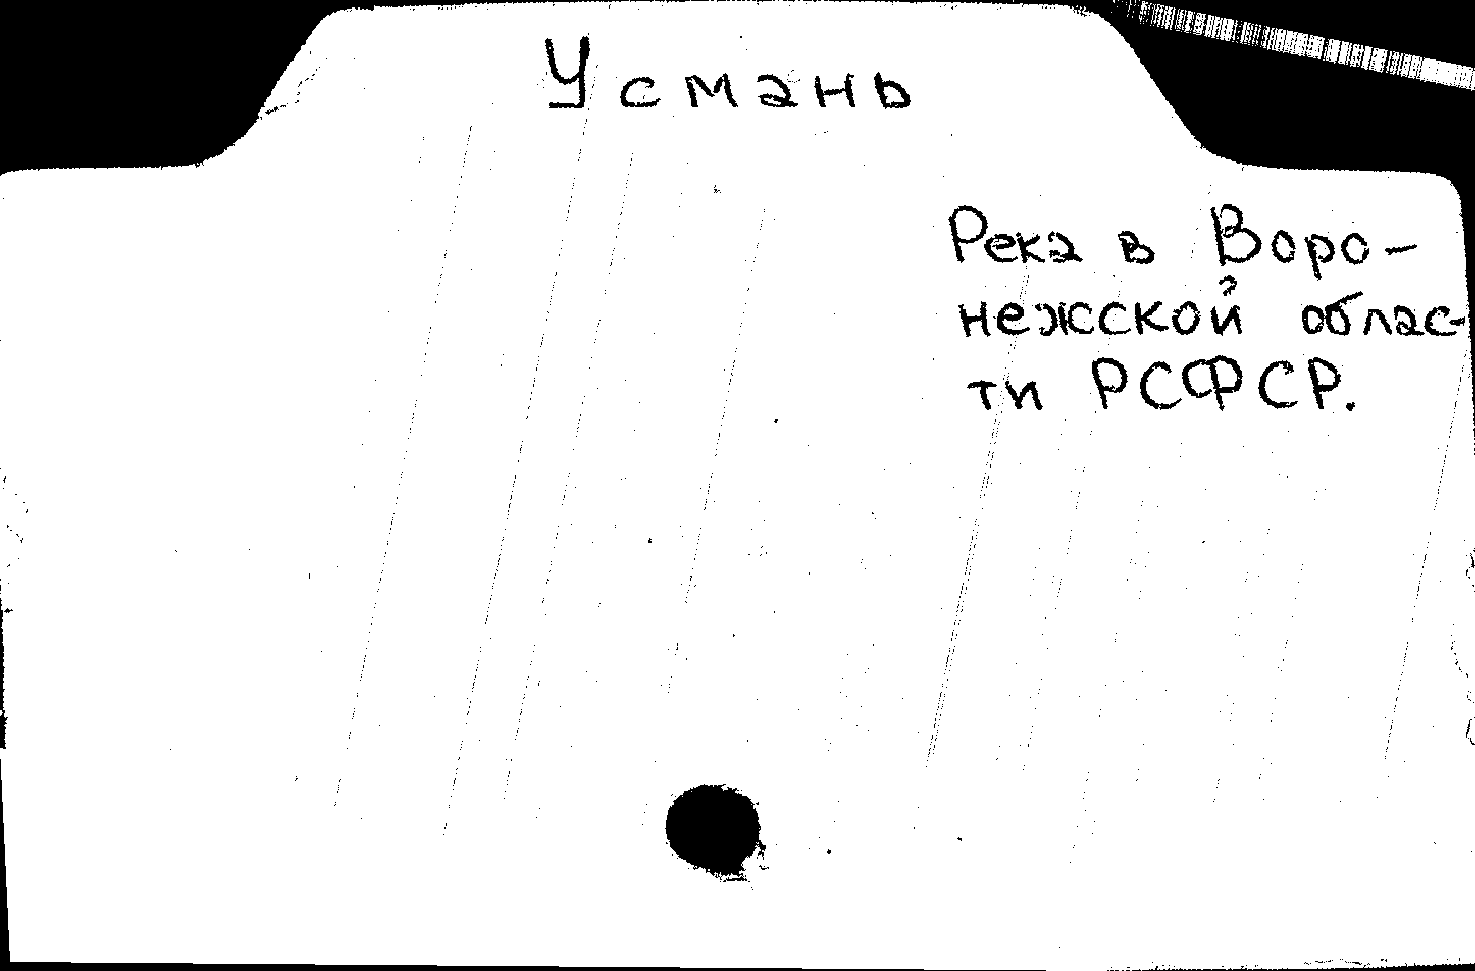 Усмань
Река в Воро-
нежсской облас-
ти РСФСР.